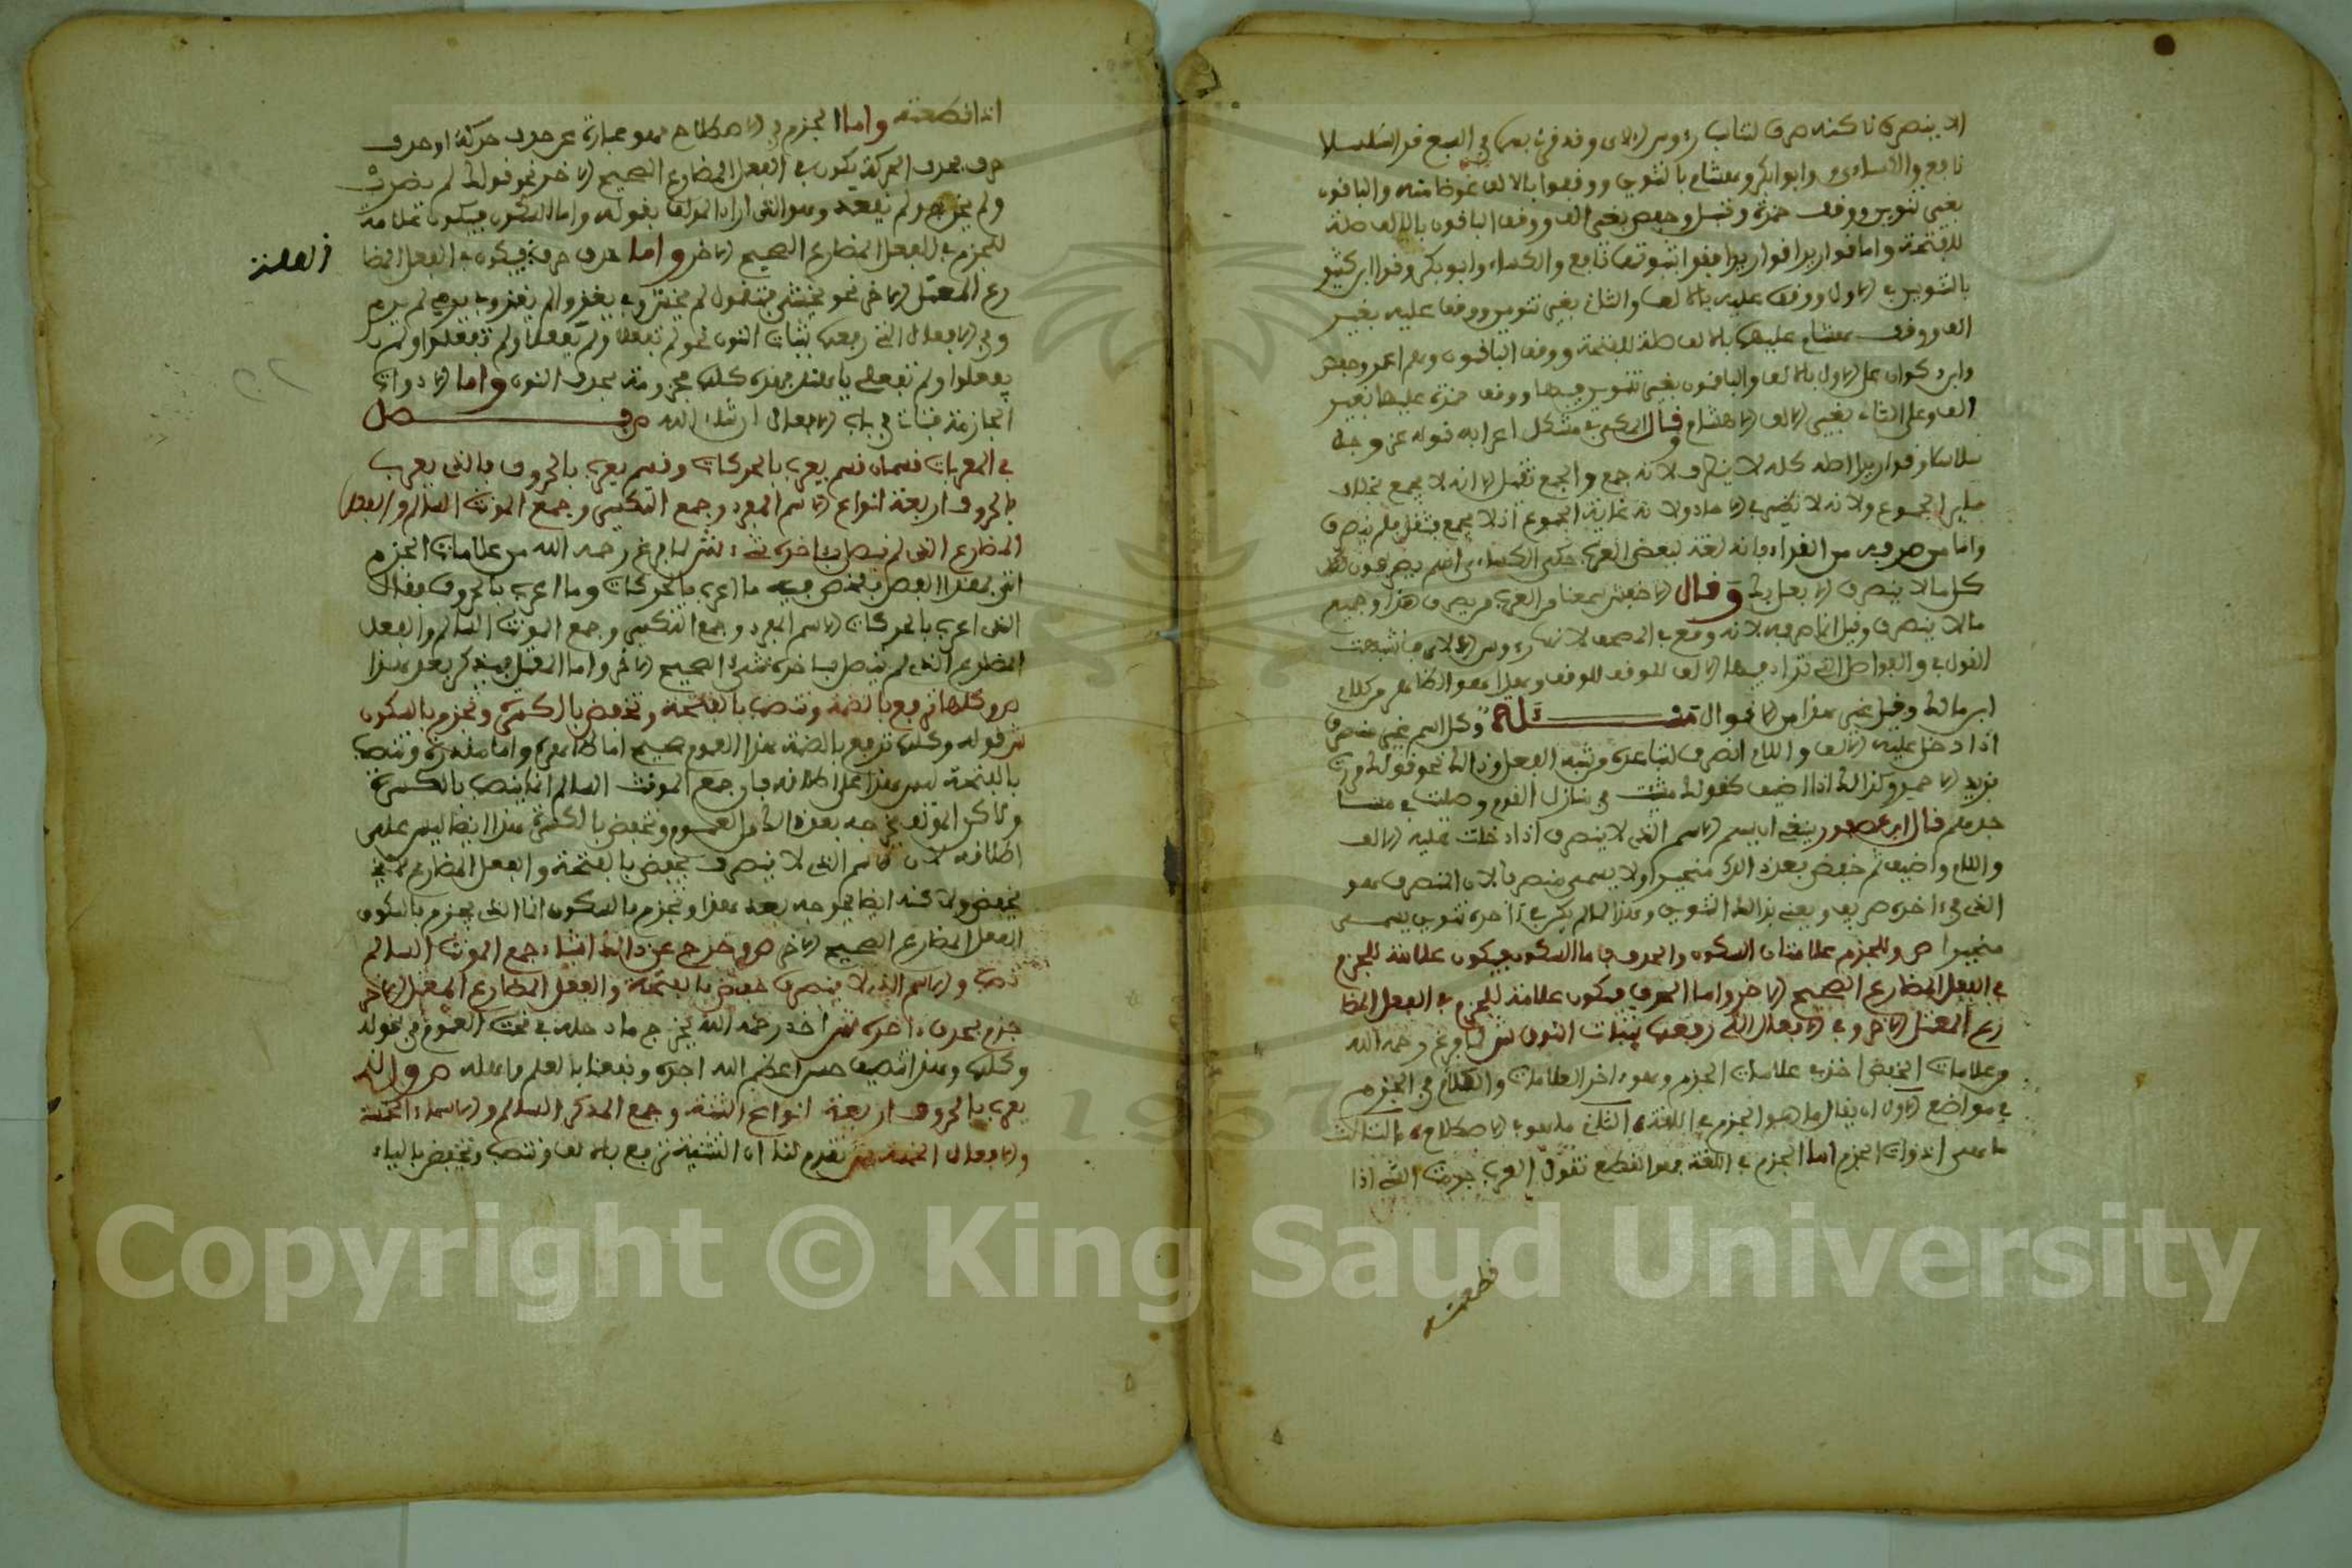 الا ينصرف لاكنه صرف لتناسب رءوس الاي وقد قرئ بهما في السبع قرا سلاسلا
نافع والكساءي وابوا بكر وهشام بالتنوين ووقفوا بالالف عوضا منه والباقون
بغير تنوين ووقف حمزة وقنبل وحفص بغير الف ووقف الباقون بالالف صلة
للفتحة واما قواريرا قواريرا فقرا بتنوينهما نافع والكساءي وابو بكر وقرا ابن كثير
بالتنوين في الاول ووقف عليه بالالف والثاني بغير تنوين ووقف عليه بغير
الف ووقف هشام عليهما بالالف صلة للفتحة ووقف الباقون وهم ابو عمرو وحفص
وابن ذكوان على الاول بالالف والباقون بغير تنوين فيهما ووقف حمزة عليهما بغير
الف وعلى الثاني بغير الف الا هشام وقال المكي في مشكل اعرابه قوله عز وجل
سلاسلا وقواريرا اصله كله لا ينصرف لانه جمع والجمع ثقيل الا انه لا يجمع فخالف
سائر الجموع ولانه لا نظير له في الاحاد ولانه غاية الجموع اذ لا يجمع فثقل فلم ينصرف
واما من صرفه من القراء فانه لغة لبعض العرب حكى الكساءي انهم يصرفون
كل ما لا ينصرف الا افعل منك وقال الاخفش سمعنا من العرب من يصرف هذا وجميع
ما لا ينصرف وقيل انما صرفه لانه وقع في المصحف لانها رءوس الاي فاشبهت
القوافي والفواصل التي تزاد فيها الالف للوقف وهذا هو الظاهر من كلام
ابن مالك وقيل غير هذا من الاقوال مسئلة وكل اسم غير منصرف
اذا دخل عليه الالف واللام انصرف لتباعده من شبه الفعل وذالك نحو قولك مررت
بزيد الاحمر وكذالك اذا اضيف كقولك مشيت في منازل القوم وصليت في مساجـ
جدهم قال ابن عصفور ينبغي ان يسمى الاسم الذي لا ينصرف اذا دخلت عليه الالف
واللام واضيف ثم خفض بعد ذالك منجرا ولا يسمى منصرفا لان المنصرف هو
الذي في ءاخره صريف ويعنى بذالك التنوين وهذا لما لم يكن في ءاخره تنوين يسمى
منجرا ص وللجزم علامتان السكون والحذف فاما السكون فيكون علامة للجزم
في الفعل المضارع الصحيح الاخر واما الحذف فيكون علامة للجزم في الفعل المضا
رع المعتل الاخر وفي الافعال التي رفعها بثبات النون ش لما فرغ رحمه الله
من علامات الخفض اخذ في علامات الجزم وهو ءاخر العلامات والكلام في الجزم
في مواضع الاول ان يقال ما هو الجزم في اللغة الثاني ما هو في الاصطلاح الثالث
ما هي ادوات الجزم اما الجزم في اللغة فهو القطع تقول العرب جزمت الشيء اذا
قطعته
اذا قطعته واما الجزم في الاصطلاح فهو عبارة عن حذف حركة او حذف
حرف فحذف الحركة يكون في الفعل المضارع الصحيح الاخر نحو قولك لم يضرب
ولم يخرج ولم يقعد وهو الذي اراد المؤلف بقوله واما السكون فيكون علامة
للجزم في الفعل المضارع الصحيح الاخر واما حذف حرف فيكون في الفعل المضا
رع المعتل الاخر نحو يخشى فتقول لم يخش وفي يغزوا لم يغز وفي يرمي لم يرم
وفي الافعال التي رفعها بثبات النون نحو لم تفعلا ولم يفعلا ولم تفعلوا ولم
يفعلوا ولم تفعلي يا هند فهذه كلها مجزومة بحذف النون واما الادوات
الجازمة فتاتي في باب الافعال ان شاء الله ص فصل
في المعربات قسمان قسم يعرب بالحركات وقسم يعرب بالحروف فالذي يعرب
بالحروف اربعة انواع الاسم المفرد وجمع التكسير وجمع المونث السالم والفعل
المضارع الذي لم يتصل بـاخره شيء ش لما فرغ رحمه الله من علامات الجزم
اتى بهذا الفصل يلخص فيه ما اعرب بالحركات وما اعرب بالحروف فقال
الذي اعرب بالحركات الاسم المفرد وجمع التكسير وجمع المونث السالم والفعل
المضارع الذي لم يتصل بـاخره شيء الصحيح الاخر واما المعتل فيذكر بعد هذا
ص وكلها ترفع بالضمة وتنصب بالفتحة وتخفض بالكسرة وتجزم بالسكون
ش قوله وكلها ترفع بالضمة هذا العموم صحيح اما ظاهرة واما مقدرة وتنصب
بالفتحة ليس هذا على اطلاقه فان جمع المونث السالم انما ينصب بالكسرة
ولاكن المؤلف يخرجه بعد ذالك من العموم وتخفض بالكسرة هذا ايضا ليس على
اطلاقه لان الاسم الذي لا ينصرف يخفض بالفتحة والفعل المضارع لا
يخفض ولاكنه ايضا يخرجه بعد هذا وتجزم بالسكون انما الذي يجزم بالسكون
الفعل المضارع الصحيح الاخر ص وخرج عن ذالك اشياء جمع المونث السالم
نصب والاسم الذي لا ينصرف خفض بالفتحة والفعل المضارع المعتل الاخر
جزم بحذف ءاخره ش اخذ رحمه الله يخرج ما دخله في تحت العموم في قوله
وكلها وهذا تصنيف حسن اعظم الله اجره ونفعنا بالعلم واهله ص والذي
يعرب بالحروف اربعة انواع التثنية وجمع المذكر السالم والاسماء الخمسة
والافعال الخمسة ش تقدم لنا ان التثنية ترفع بالالف وتنصب وتخفض بالياء
Copyright © King Saud University
1957